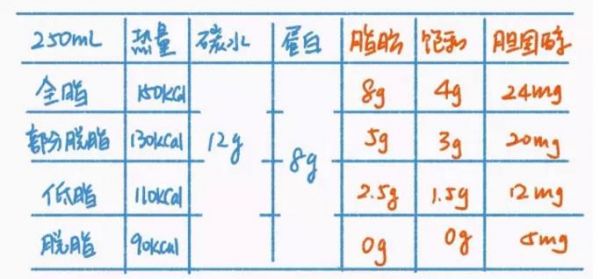 250mL 热量 碳水 蛋白 脂肪 饱和 胆固醇
全脂 150kcal 8g 4g 24mg
部分脱脂 130kcal 12g 8g 5g 3g 20mg
低脂 110kcal 2.5g 1.5g 12mg
脱脂 90kcal 0g 0g 5mg